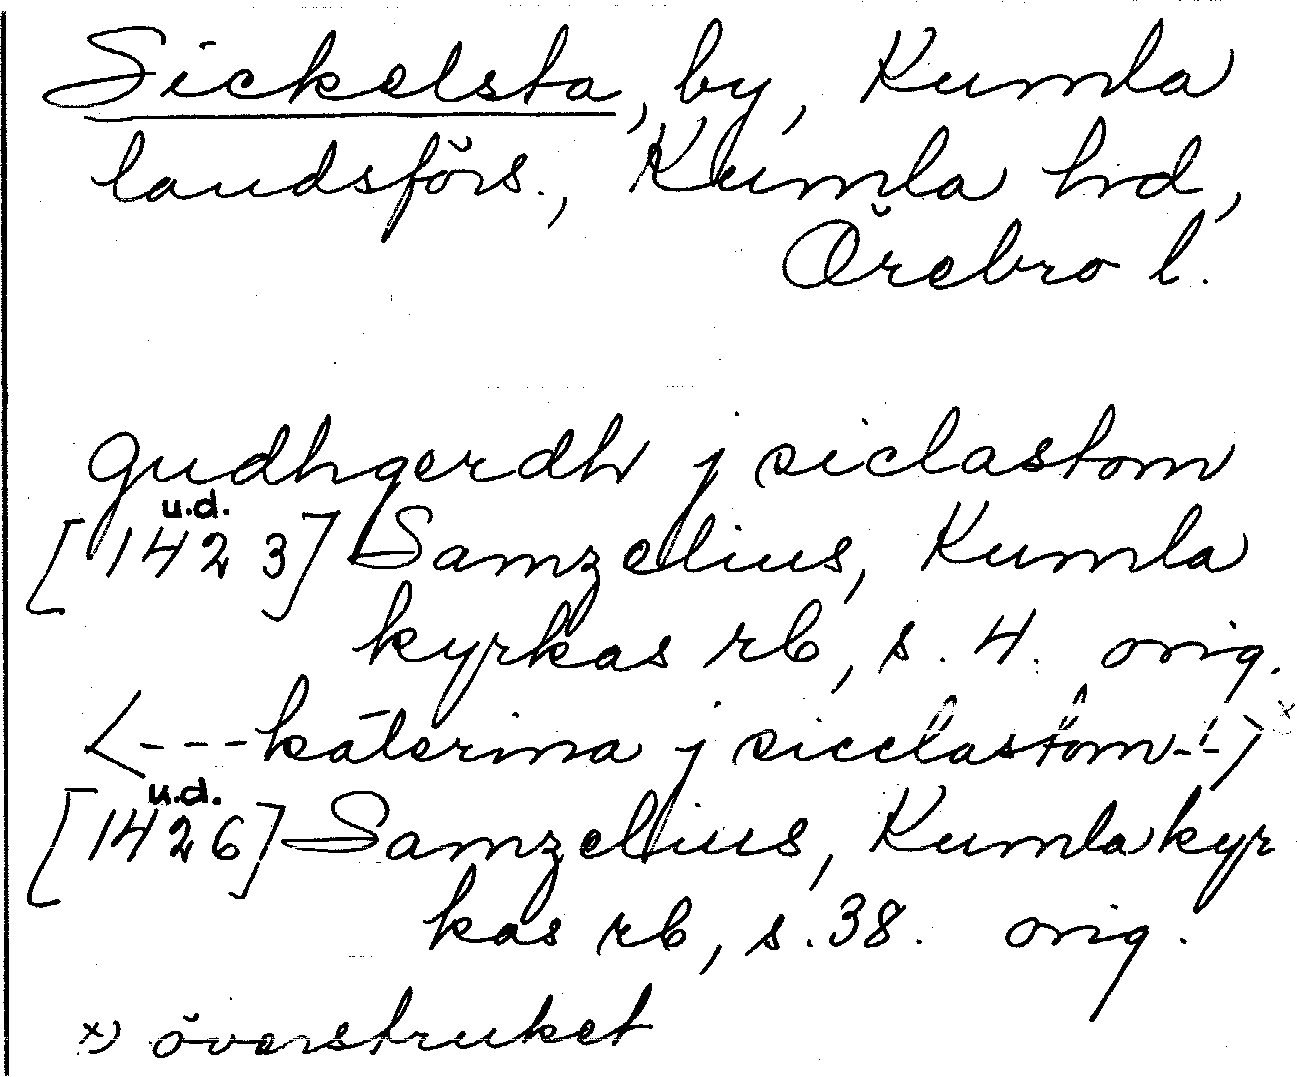 Sickelsta, by, Kumla
landsförs., Kumla hd,
Örebro l.
gudhgerdh j siclastom
u.d.
[1423] Samzelius, Kumla
kyrkas rb, s. 4. orig.
<---katerina j sicclastom--->x
u.d.
[1426] Samzelius, Kumla kyr
kas rb, s. 38. orig.
x) överstruket